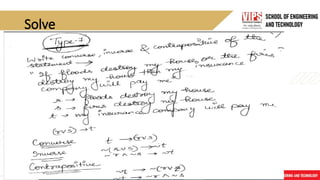 Solve
VIPS
SCHOOL OF ENGINEERING
AND TECHNOLOGY
Type-7
Write converse, inverse & contrapositive of the
statement →
"If floods destroy my house or the fires
destroy my house then my insurance
company will pay me"
r → floods destroy my house
s → fires destroy my house
t → my insurance company will pay me
(rvs) → t
Converse t → (rvs)
Inverse ~(rvs) → ~t
~r ∧ ~s → ~t
Contrapositive ~t → ~(rvs)
~t → ~r ∧ ~s
EERING AND TECHNOLOGY